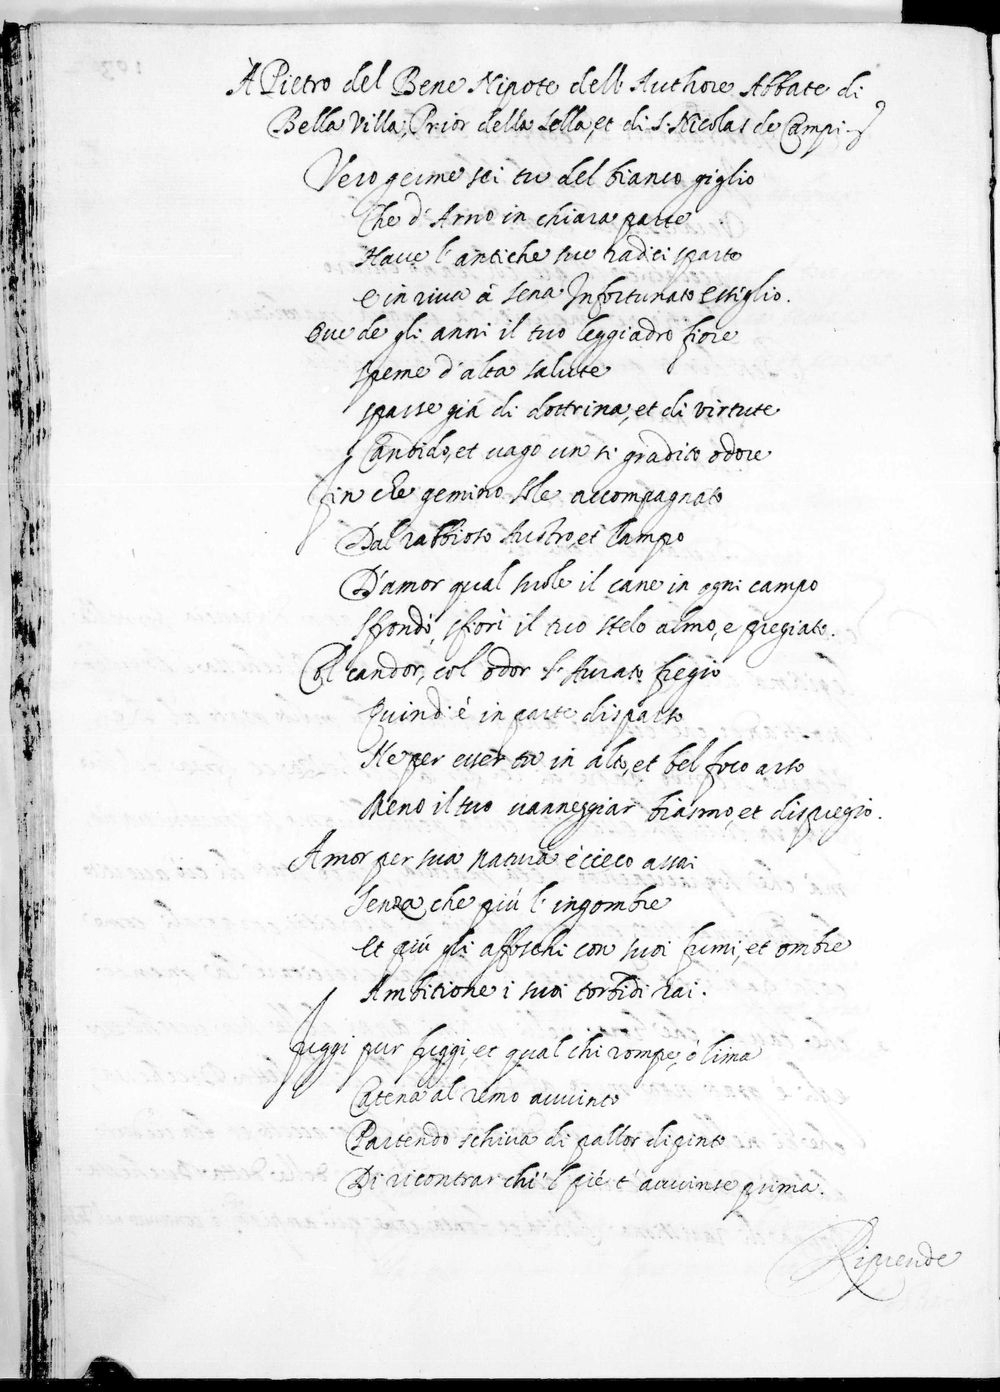 A Pietro del Bene Nipote dell' Authore Abbate di
Bella Villa, Prior della Lella, et di S. Nicolas de Campi
Vero germe sei tu del bianco giglio
Che d'Arno in chiara parte
Haue l'antiche sue radici sparte
e in riua à Sena Infortunato essiglio.
Oue de gli anni il tuo leggiadro fiore
speme d'alta salute
sparse giá di dottrina, et di virtute
Candido, et uago un sì gradito odore
fin che gemino sole accompagnato
Dal rabbioso Austro, et lampo
D'amor qual suole il cane in ogni campo
sfrondò, sfiorì il tuo stelo almo, e pregiato.
Col candor, col odor l'Aurato fregio
Quindi é in parte disparso
Ne per esser tu in alto, et bel foco arso
Meno il tuo uanneggiar biasmo, et dispregio.
Amor per sua natura é cieco assai
Senza che piú l'ingombre
et piú gli affoschi con suoi fumi, et ombre
Ambitione i suoi torbidi rai.
fuggi pur fuggi, et qual chi rompe, ò lima
Catena al remo auuinto
Partendo schiua di pallor dipinto
Di ricontrar chi 'l pié t'auuinse prima.
Riprende